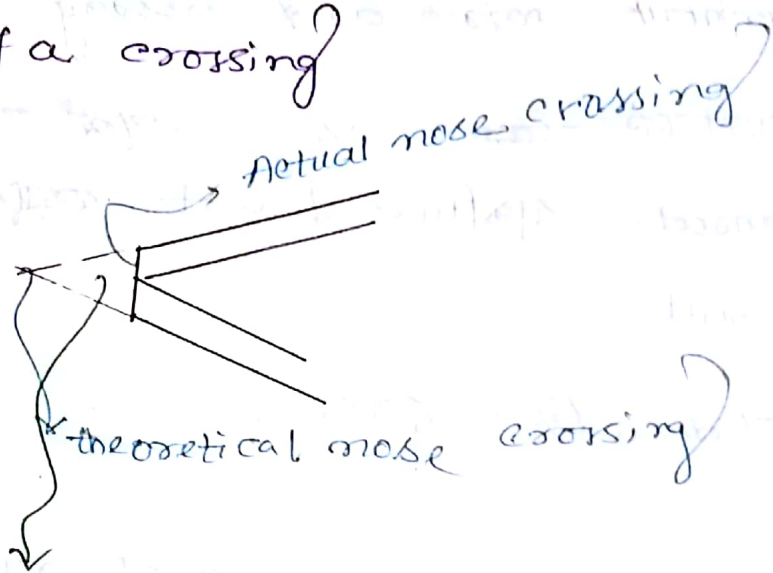 f a crossing
Actual nose crossing
theoretical nose crossing